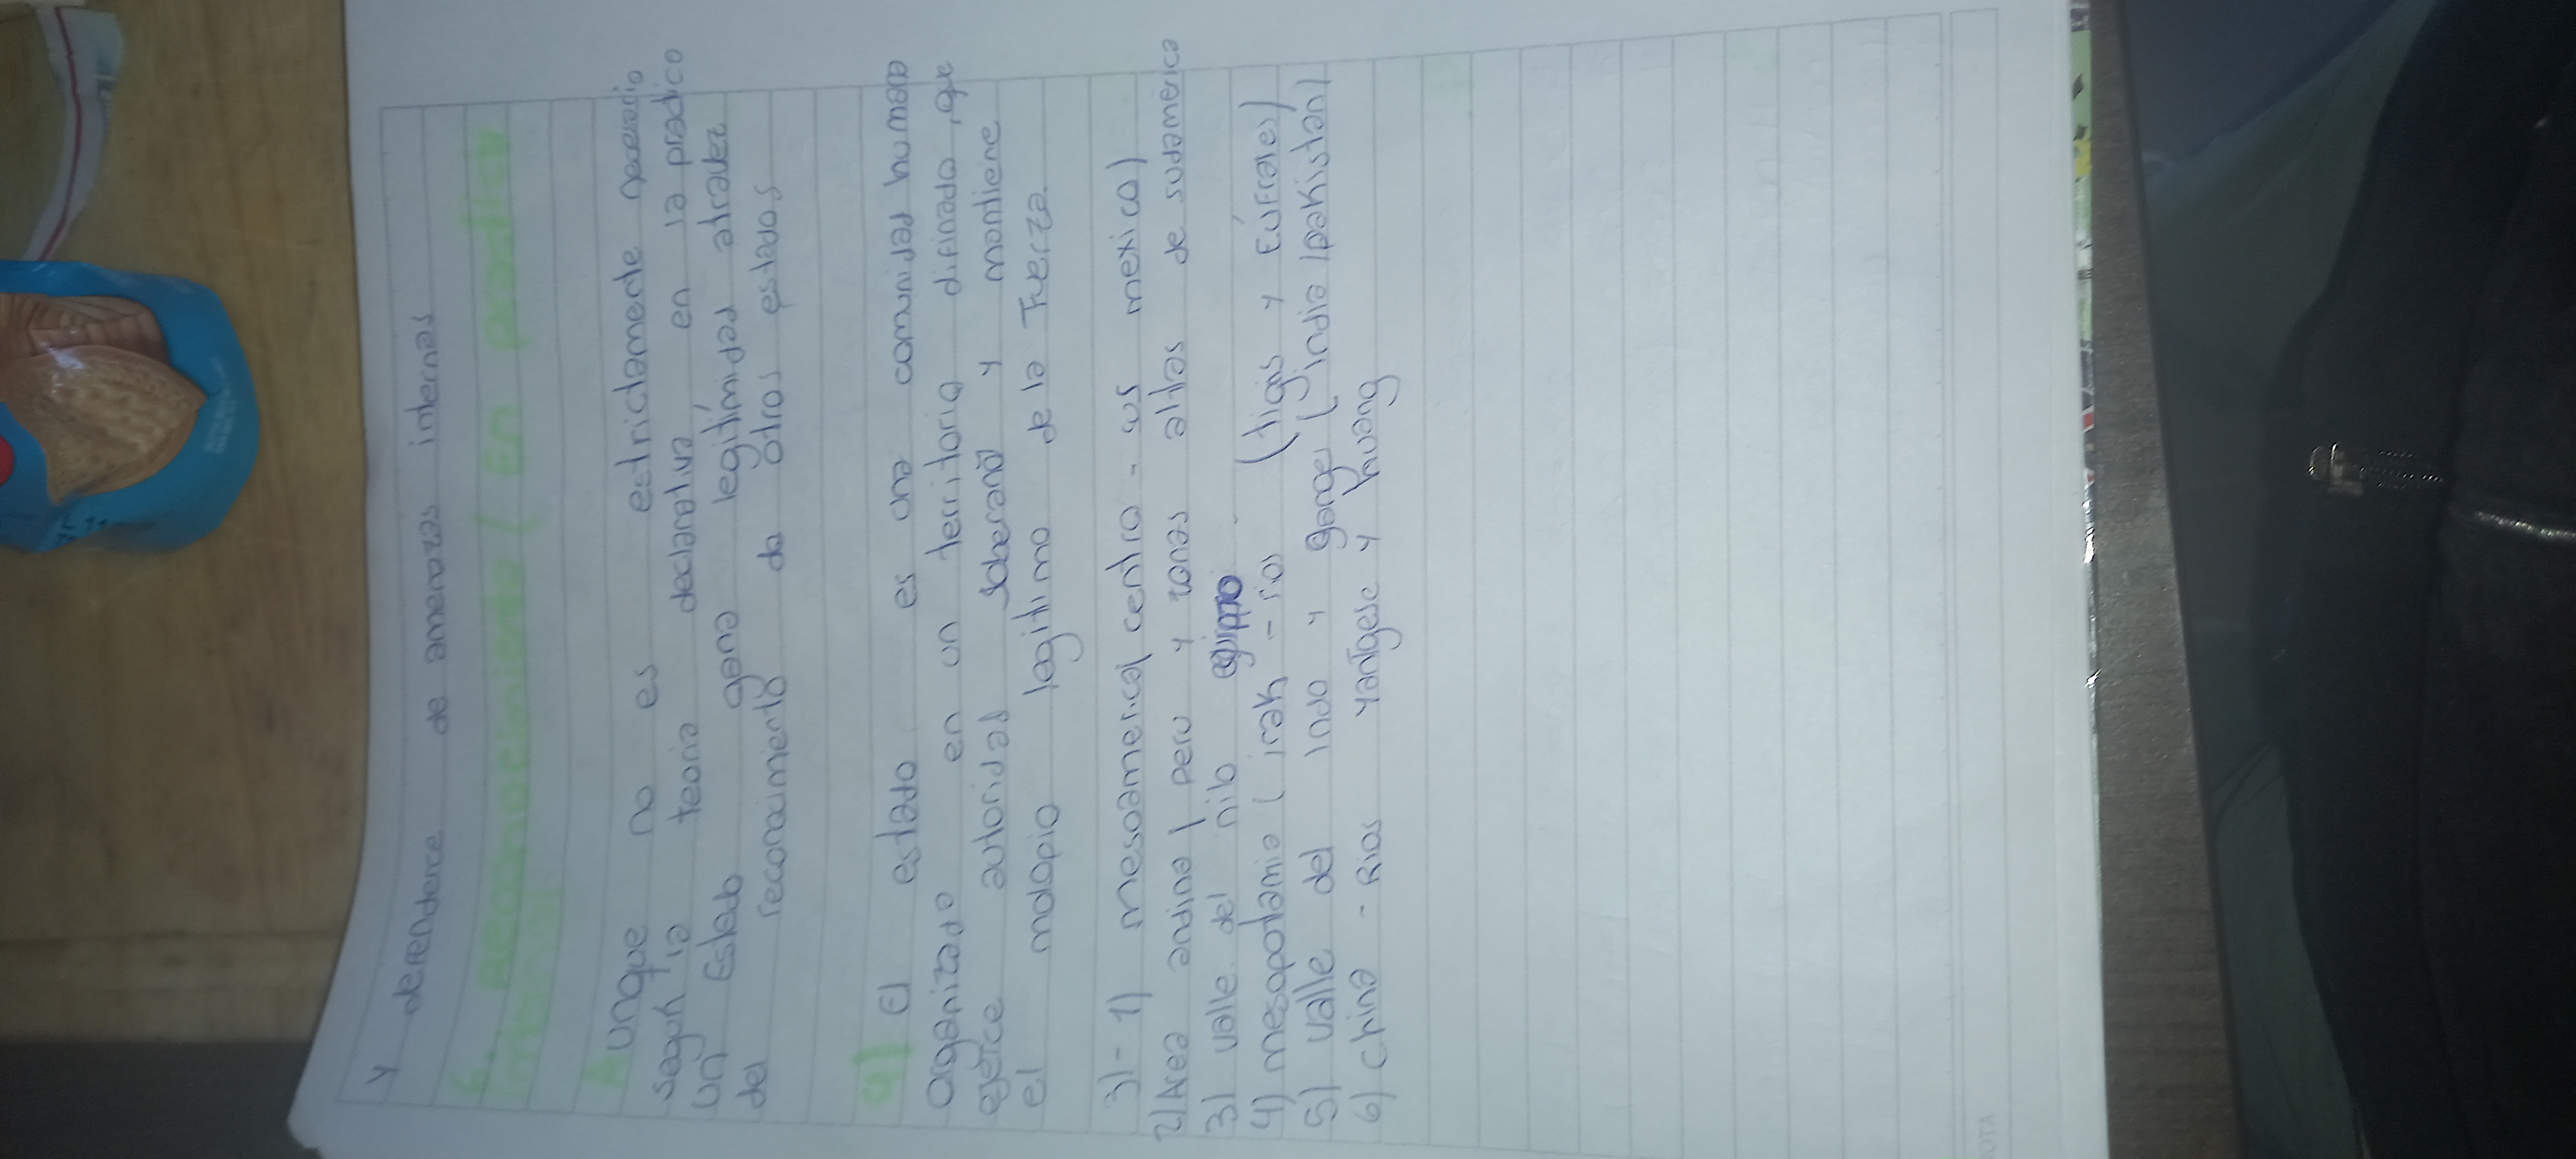 y derendence de amenazas internas
6. reconocimiento ( En practica
Aunque no es estrictamente necesario
según la teoria declarativa en la practico
un Estado gana legitimidad atravez
del reconocimiento de otros estados
a) El estado es una comunidad humana
organizado en un territorio difinado, que
ejerce autoridad soberano y mantiene
el molopio legitimo de la Fuerza.
3)- 1) mesoamerica( centro - sus mexico)
2) Area andina ( peru y zonas altas de sudamerica
3) valle del nilo egipto
4) mesopotamia ( irak - rios (tigis y Eúfrates)
5) valle del Indo y gange ( india (pakistan)
6) china - Rios yangese y huang